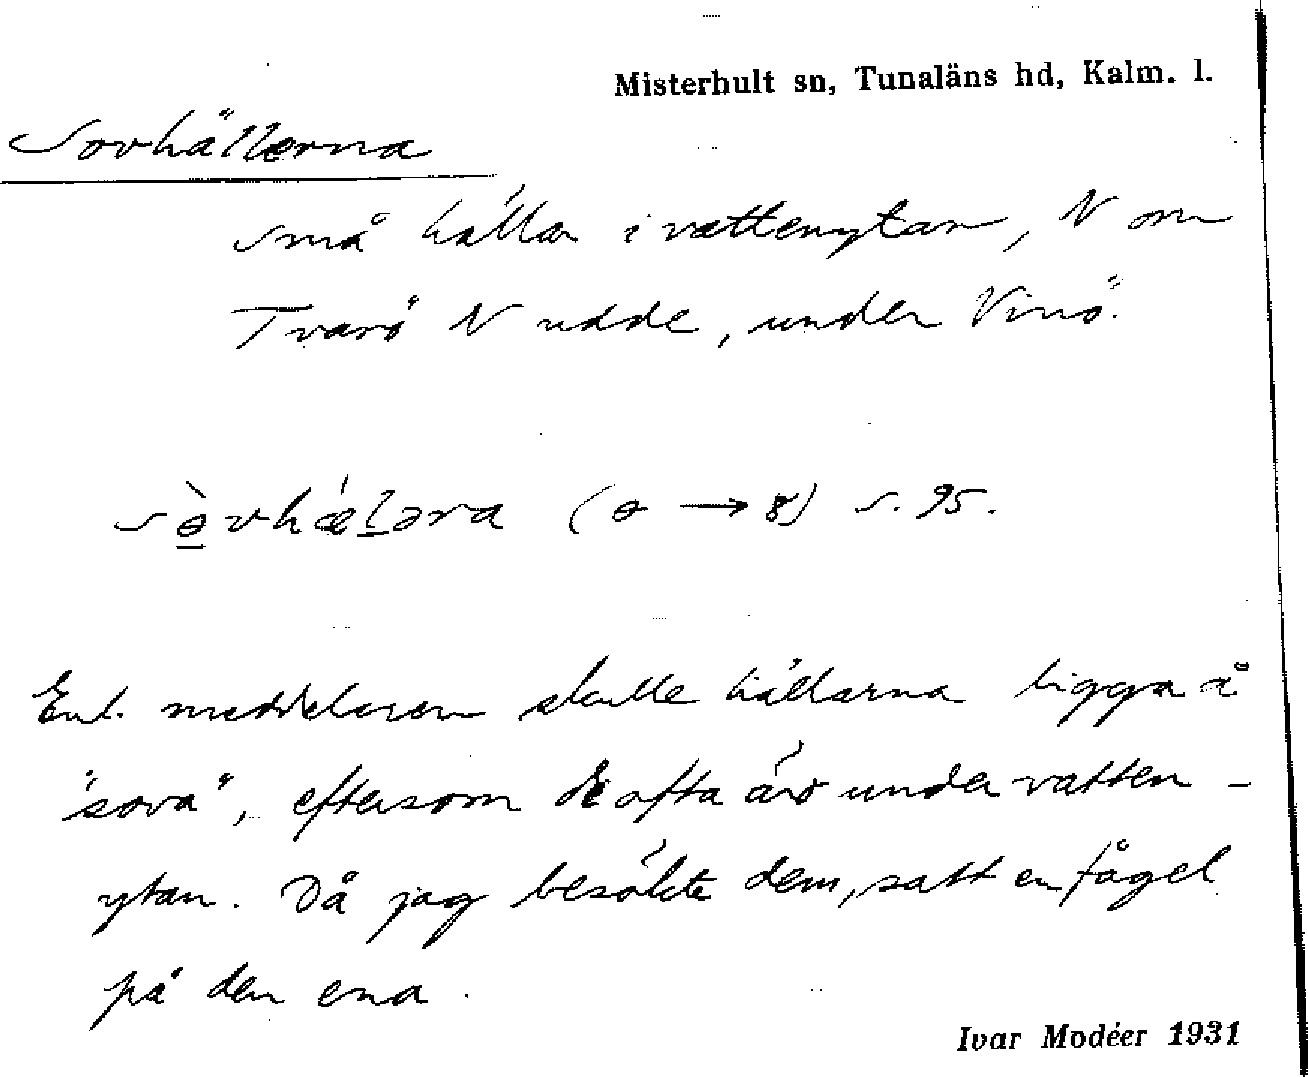 Misterhult sn, Tunaläns hd, Kalm. l.
Sovhällerna
små hällar i vattenytan, N om
Tvarö N udde, under Vinö.
sɵ̀vhǽləra (ɵ → 8) s. 95.
Enl. meddelaren skulle hällarna ligga å
"sova", eftersom de ofta äro under vatten-
ytan. Då jag besökte dem, satt en fågel
på den ena.
Ivar Modéer 1931